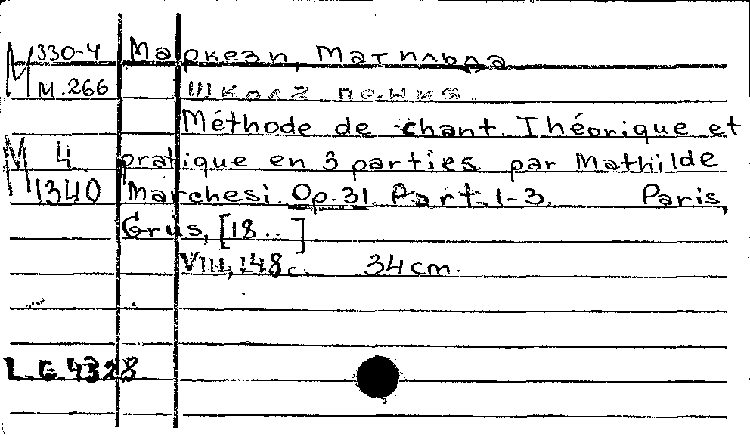 М 330-4 Маркези, Матильда
М.266 Школа пения
Méthode de chant Théorique et
М 4 pratique en 3 parties par Mathilde
1340 Marchesi. Op.31 Part. 1-3. Paris,
Grus, [18..]
VIII, 148 с. 34 cm.
4328